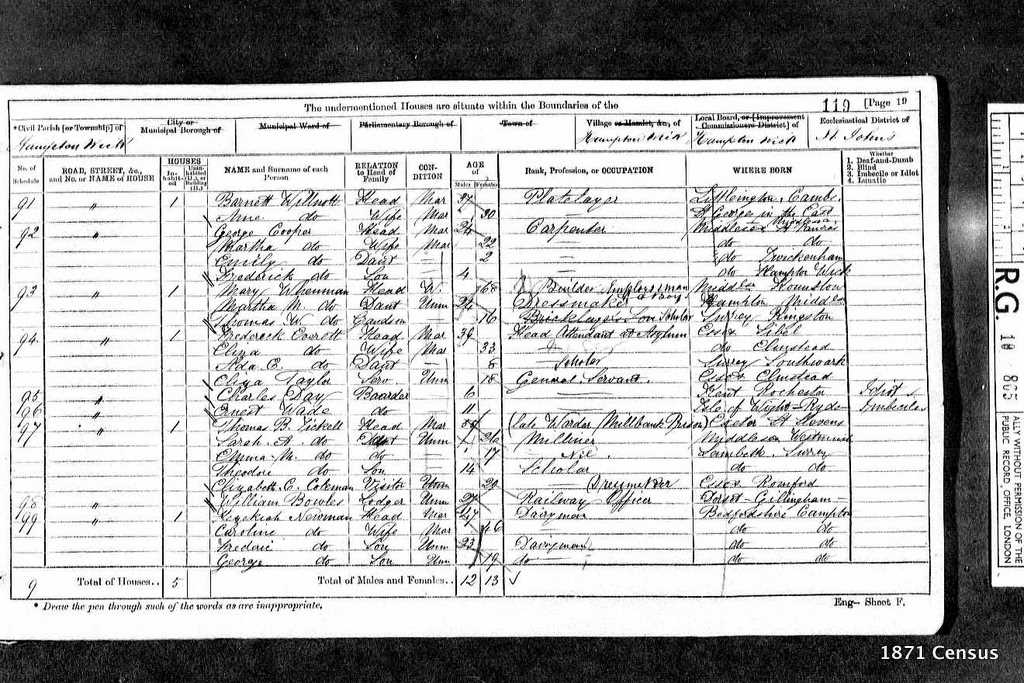 The undermentioned Houses are situate within the Boundaries of the
119 [Page 19
*Civil Parish [or Township] of
City or Municipal Borough of
Municipal Ward of
Parliamentary Borough of
Town of
Village or Hamlet, &c., of
Local Board, or [Improvement Commissioners District] of
Ecclesiastical District of
Hampton Wick Hampton Wick Hampton Wick St Johns
No. of Schedule
ROAD, STREET, &c., and No. or NAME of HOUSE
HOUSES
Inhabited
Uninhabited (U.), or Building (B.)
NAME and Surname of each Person
RELATION to Head of Family
CONDITION
AGE of
Males Females
Rank, Profession, or OCCUPATION
WHERE BORN
Whether
1. Deaf-and-Dumb
2. Blind
3. Imbecile or Idiot
4. Lunatic
91 " 1 Barnett Willmott Head Mar 37 Platelayer Litlington, Cambs.
Anne do Wife Mar 30 St Georges in the East Middlesex
92 " George Cooper Head Mar 24 Carpenter Middlesex St Pancras
Martha do Wife Mar 22 — do do
Emily do Daur — 2 — do Twickenham
Frederick do Son — 4 — do Hampton Wick
93 " 1 Mary Head W. 68 Builder Employs 1 man & Boy Middlx Hounslow
Martha M. do Daur Unm 24 Dressmaker Hampton Middlx
Thomas W. do Grandson 16 Bricklayers Son Scholar Surrey Kingston
94 " 1 Frederick Everett Head Mar 39 Head Attendant at Asylum Essex
Eliza do Wife Mar 33 — do Elmstead
Ada E. do Daur — 8 Scholar Surrey Southwark
Eliza Taylor Serv. Unm 18 General Servant. Essex Elmstead
95 " Charles Day Boarder 6 — Kent Rochester Idiot
96 " Ernest Wade do 11 — Isle of Wight - Ryde Imbecile
97 " 1 Thomas B. Tickell Head Mar (late Warder Millbank Prison) Exeter St Stevens
Sarah A. do Unm 26 Milliner Middlesex Westminst
Emma M. do do 17 Nil. Lambeth Surrey
Theodore do Son 14 Scholar do do
Elizabeth C. Coleman Visitor Unm 29 Dressmaker Essex Romford
98 " William Bowles Lodger Unm 27 Railway Officer Dorset - Gillingham -
99 " 1 Hezekiah Newman Head Mar 47 Dairyman Bedfordshire Campton
Caroline do Wife Mar 46 do do
Frederic do Son Unm 23 Dairyman do do
George do Son Unm 19 do do do
9 Total of Houses.. 5 Total of Males and Females.. 12 13
* Draw the pen through such of the words as are inappropriate.
Eng— Sheet F.
R.G. 10 865
ALLY WITHOUT PERMISSION OF THE
PUBLIC RECORD OFFICE, LONDON
1871 Census